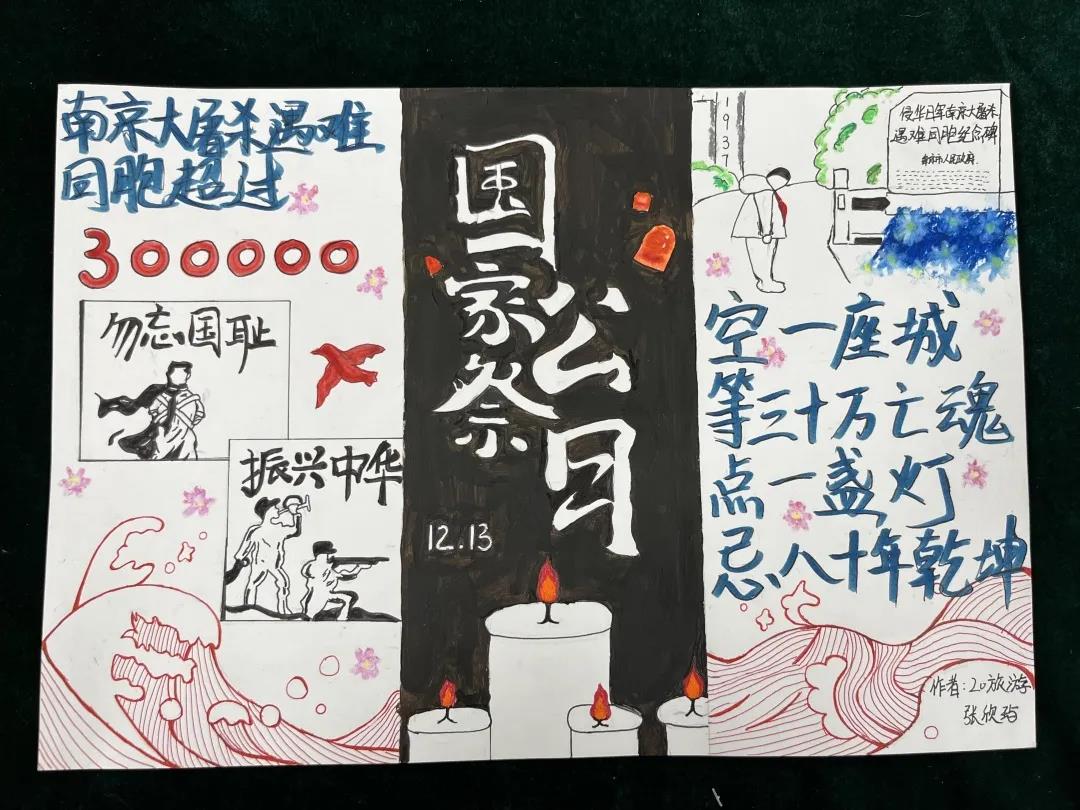 南京大屠杀遇难
同胞超过
300000
勿忘国耻
振兴中华
国家公祭日
12.13
1937
侵华日军南京大屠杀
遇难同胞纪念碑
南京市人民政府
空一座城
等三十万亡魂
点一盏灯
忌八十年乾坤
作者:20旅游